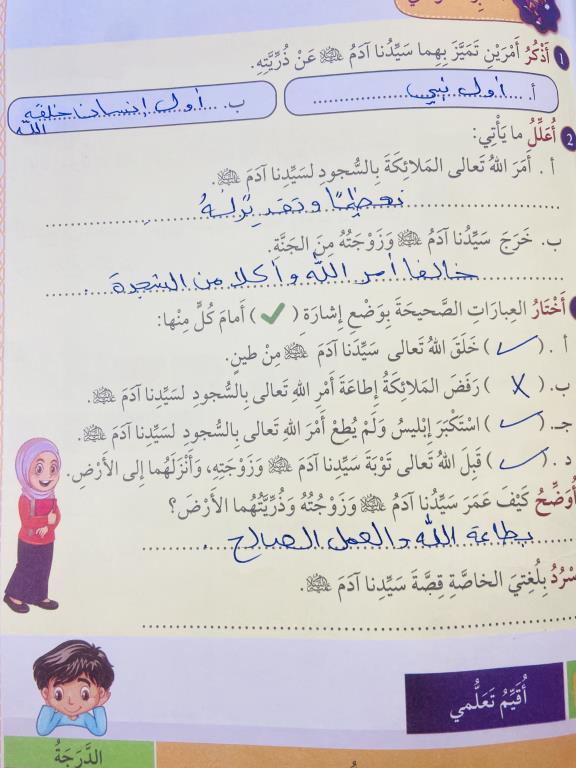 1 أَذْكُرُ أَمْرَيْنِ تَمَيَّزَ بِهِما سَيِّدُنا آدَمُ ﷺ عَنْ ذُرِّيَّتِهِ.
أ. أول نبي
ب. أول إنسان خلقه الله
2 أُعَلِّلُ ما يَأْتِي:
أ . أَمَرَ اللهُ تَعالى المَلائِكَةَ بِالسُّجودِ لِسَيِّدِنا آدَمَ ﷺ.
تعظيمًا وتقديرًا له
ب. خَرَجَ سَيِّدُنا آدَمُ ﷺ وَزَوْجَتُهُ مِنَ الجَنَّةِ.
خالفا أمر الله وأكلا من الشجرة .
أَخْتارُ العِباراتِ الصَّحيحَةَ بِوَضْعِ إِشارَةِ (✓) أَمامَ كُلٍّ مِنْها:
أ . (✓) خَلَقَ اللهُ تَعالى سَيِّدَنا آدَمَ ﷺ مِنْ طينٍ.
ب. (X) رَفَضَ المَلائِكَةُ إِطاعَةَ أَمْرِ اللهِ تَعالى بِالسُّجودِ لِسَيِّدِنا آدَمَ ﷺ.
جـ. (✓) اسْتَكْبَرَ إِبْليسُ وَلَمْ يُطِعْ أَمْرَ اللهِ تَعالى بِالسُّجودِ لِسَيِّدِنا آدَمَ ﷺ.
د . (✓) قَبِلَ اللهُ تَعالى تَوْبَةَ سَيِّدِنا آدَمَ ﷺ وَزَوْجَتِهِ، وَأَنْزَلَهُما إِلى الأَرْضِ.
أُوَضِّحُ كَيْفَ عَمَرَ سَيِّدُنا آدَمُ ﷺ وَزَوْجَتُهُ وَذُرِّيَّتُهُما الأَرْضَ؟
بطاعة الله والعمل الصالح .
سْرُدُ بِلُغَتِيَ الخاصَّةِ قِصَّةَ سَيِّدِنا آدَمَ ﷺ.
أُقَيِّمُ تَعَلُّمي
الدَّرَجَةُ